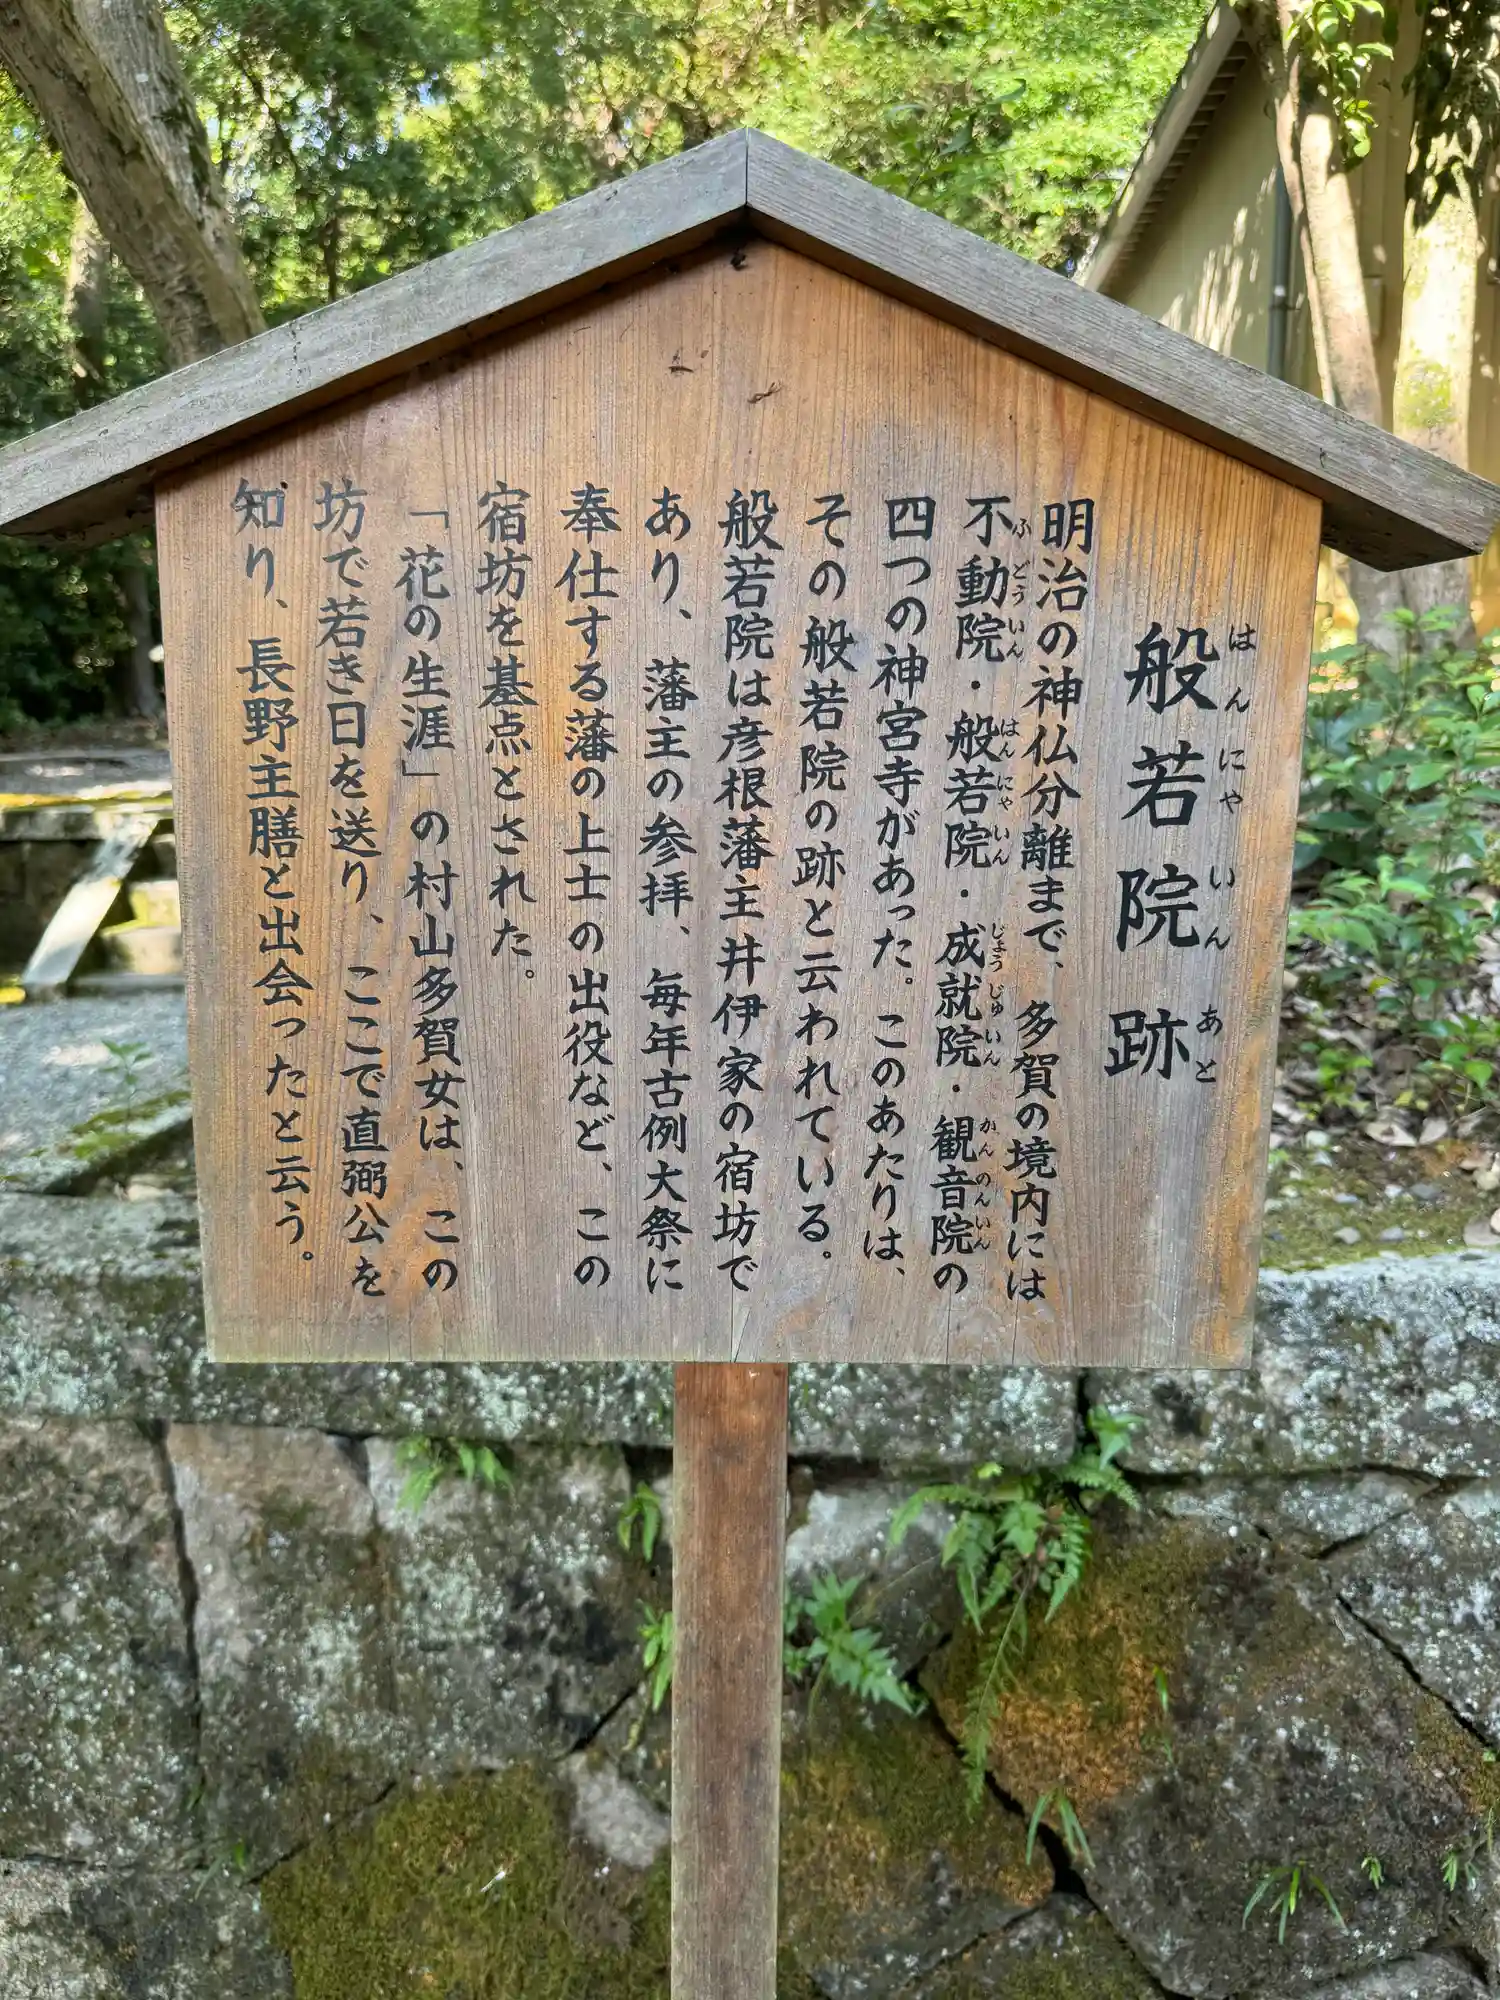 般若院跡
はんにゃいんあと
明治の神仏分離まで、多賀の境内には
不動院・般若院・成就院・観音院の
ふどういん はんにゃいん じょうじゅいん かんのんいん
四つの神宮寺があった。このあたりは、
その般若院の跡と云われている。
般若院は彦根藩主井伊家の宿坊で
あり、藩主の参拝、毎年古例大祭に
奉仕する藩の上士の出役など、この
宿坊を基点とされた。
「花の生涯」の村山多賀女は、この
坊で若き日を送り、ここで直弼公を
知り、長野主膳と出会ったと云う。